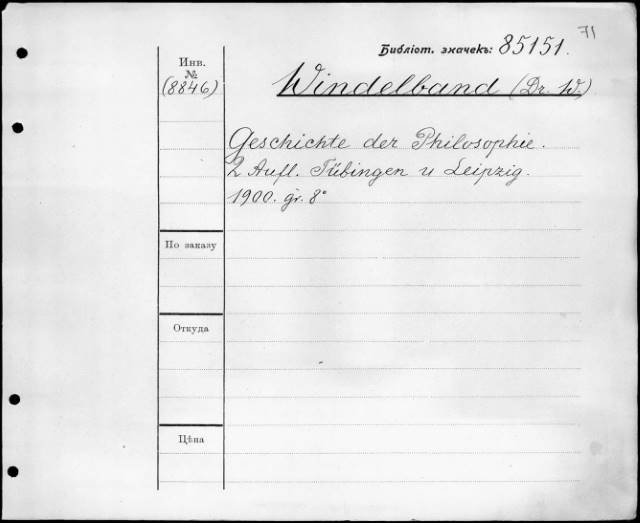 71
Библіот. значекъ: 85151.
Инв.
№
(8846)
Windelband (Dr. W.)
Geschichte der Philosophie.
2 Aufl. Tübingen u Leipzig.
1900. gr. 8°
По заказу
Откуда
Цѣна